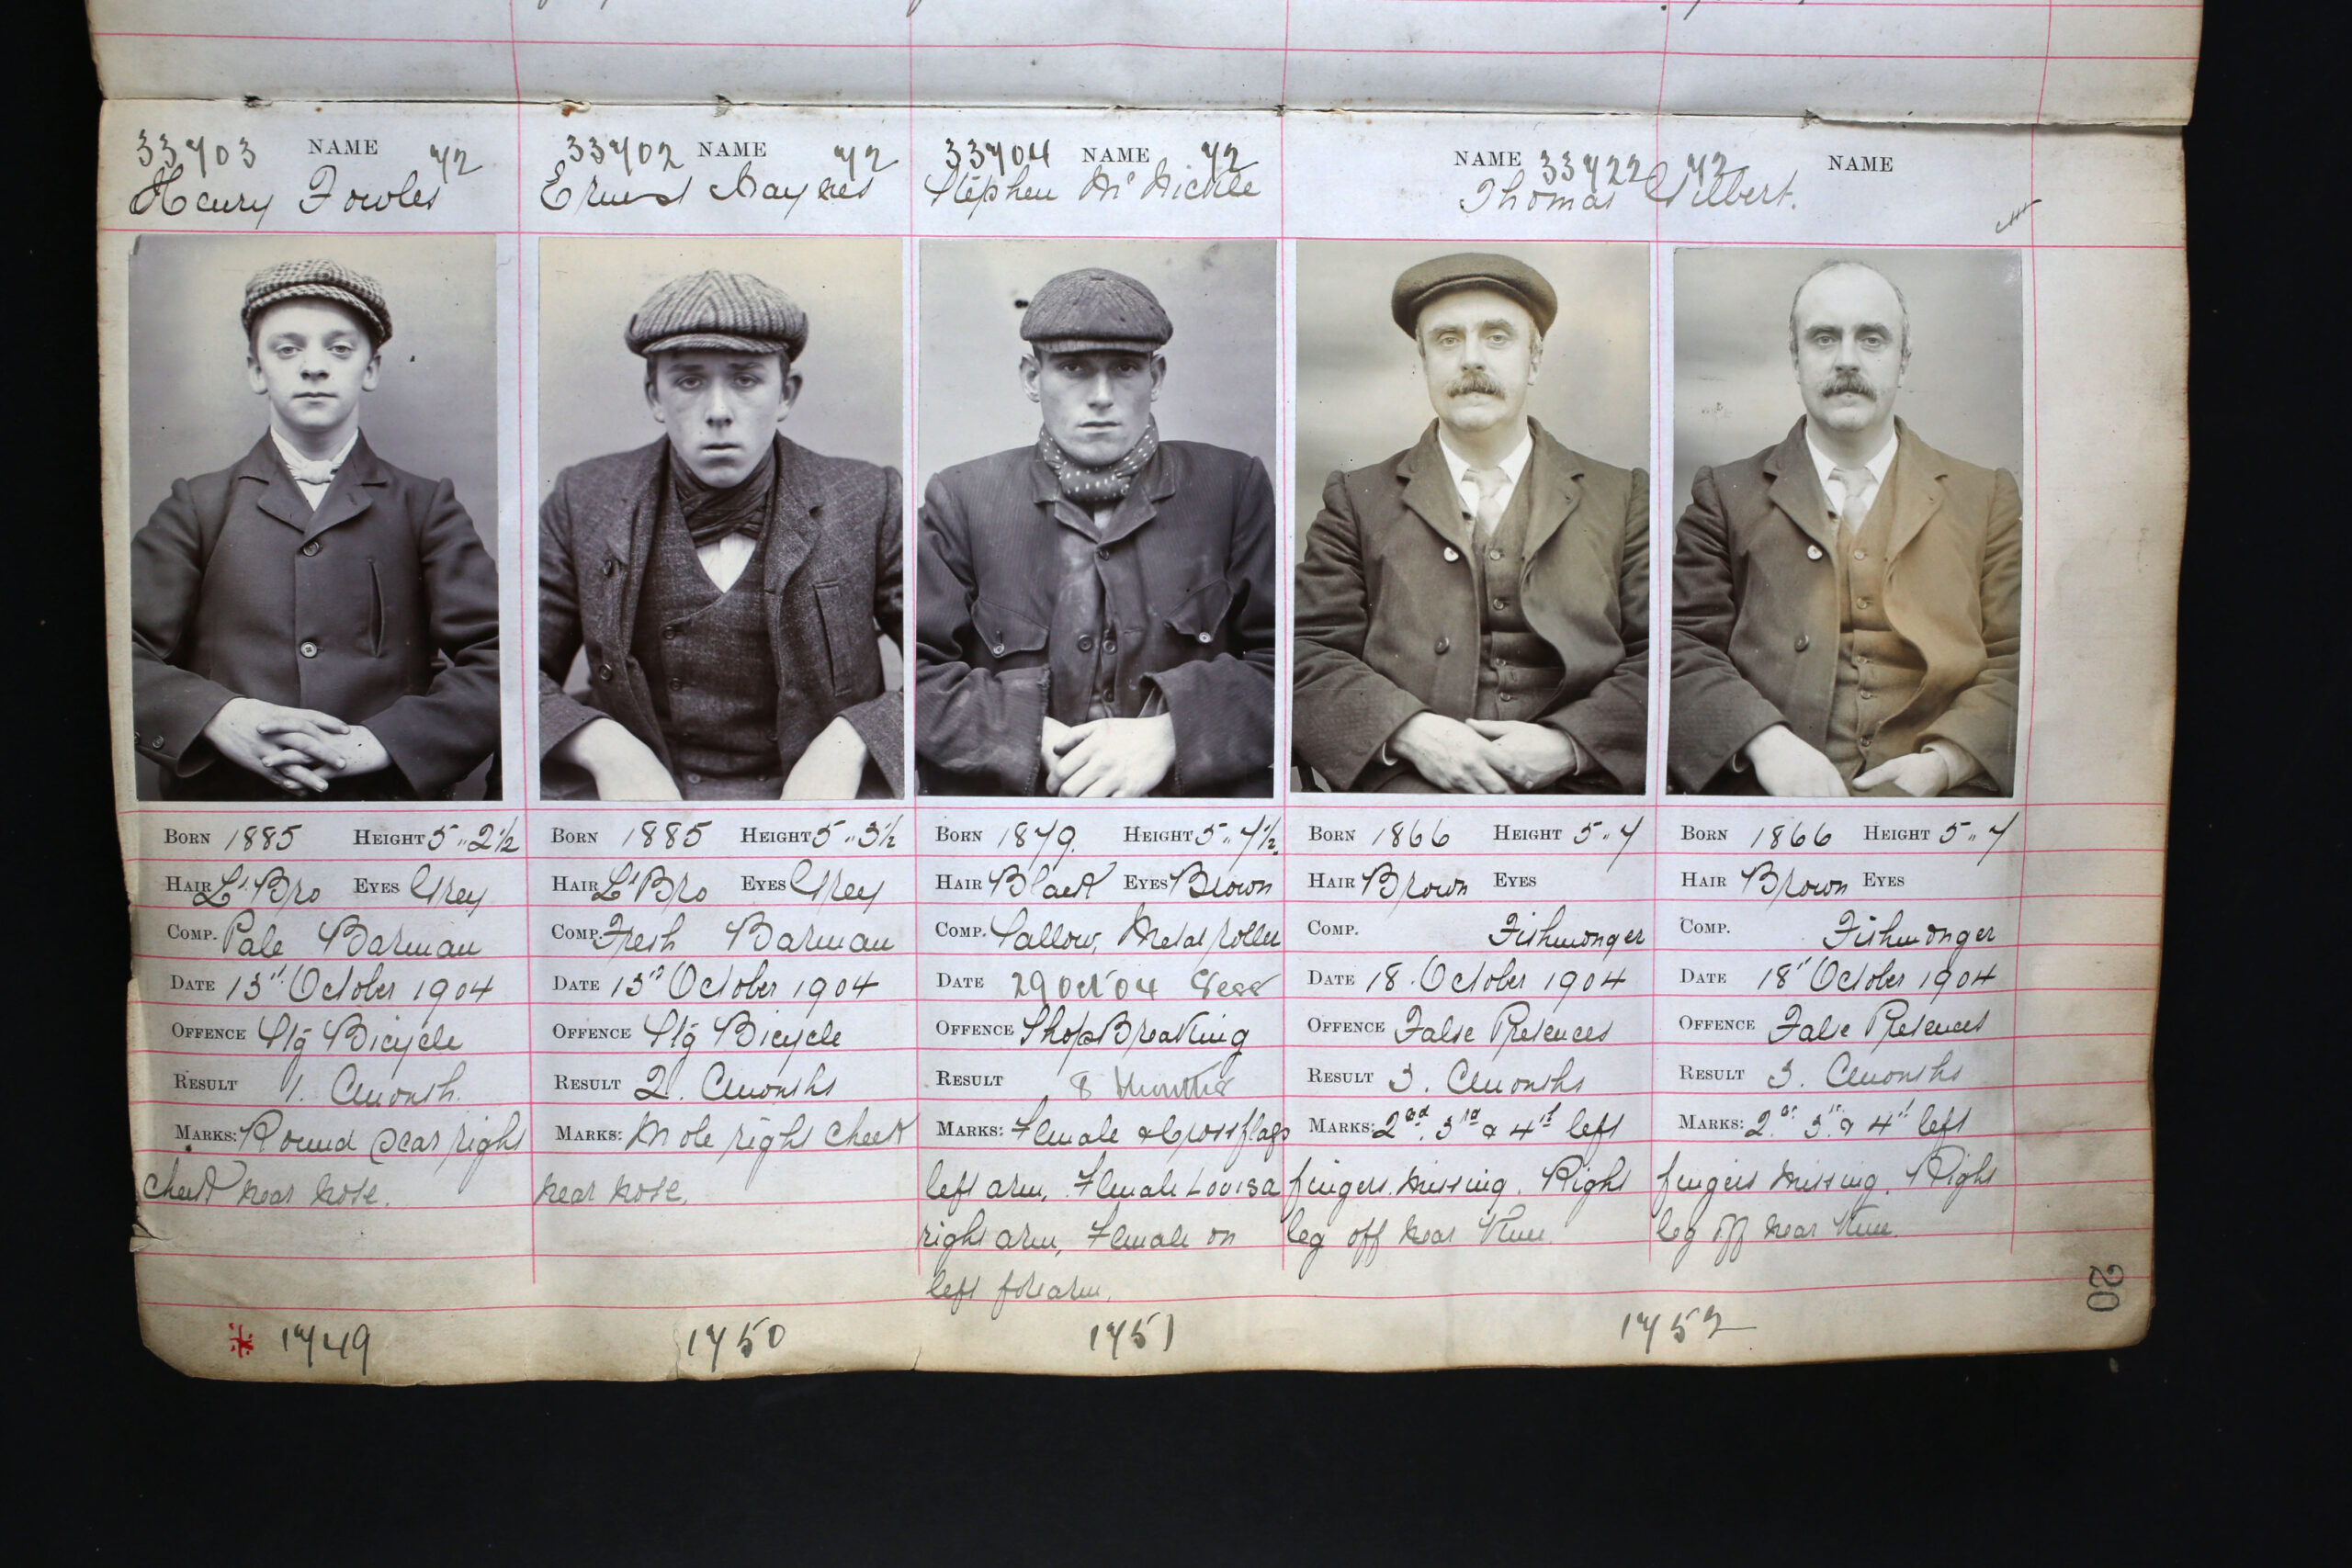 33703 NAME 72
Henry Fowles
33702 NAME 72
Ernest Haynes
33704 NAME 72
Stephen Mc Nickle
NAME 33722 72 NAME
Thomas Gilbert.
BORN 1885 HEIGHT 5"2½
HAIR Lt Bro EYES Grey
COMP. Pale Barman
DATE 13th October 1904
OFFENCE Stg Bicycle
RESULT 1. Month.
MARKS: Round scar right
cheek near nose.
* 1749
BORN 1885 HEIGHT 5"3½
HAIR Lt Bro EYES Grey
COMP. Fresh Barman
DATE 13th October 1904
OFFENCE Stg Bicycle
RESULT 2. Months
MARKS: Mole right cheek
near nose.
1750
BORN 1879. HEIGHT 5"7½.
HAIR Black EYES Brown
COMP. Sallow, Metal roller
DATE 29 Oct 04 Sess
OFFENCE ShopBreaking
RESULT 8 Months
MARKS: Female & Cross flags
left arm, Female Louisa
right arm, Female on
left forearm.
1751
BORN 1866 HEIGHT 5"7
HAIR Brown EYES
COMP. Fishmonger
DATE 18. October 1904
OFFENCE False Pretences
RESULT 3. Months
MARKS: 2nd. 3rd & 4th left
fingers missing. Right
leg off near Knee.
BORN 1866 HEIGHT 5"7
HAIR Brown EYES
COMP. Fishmonger
DATE 18th October 1904
OFFENCE False Pretences
RESULT 3. Months
MARKS: 2nd 3rd & 4th left
fingers missing. Right
leg off near Knee.
1752
20